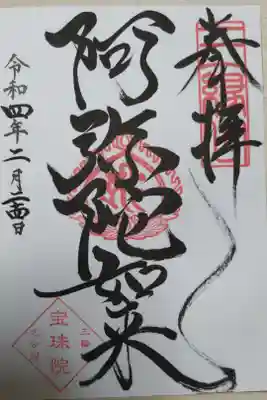 奉拝
阿弥陀如来
令和四年二月二四日
三輪
宝珠院